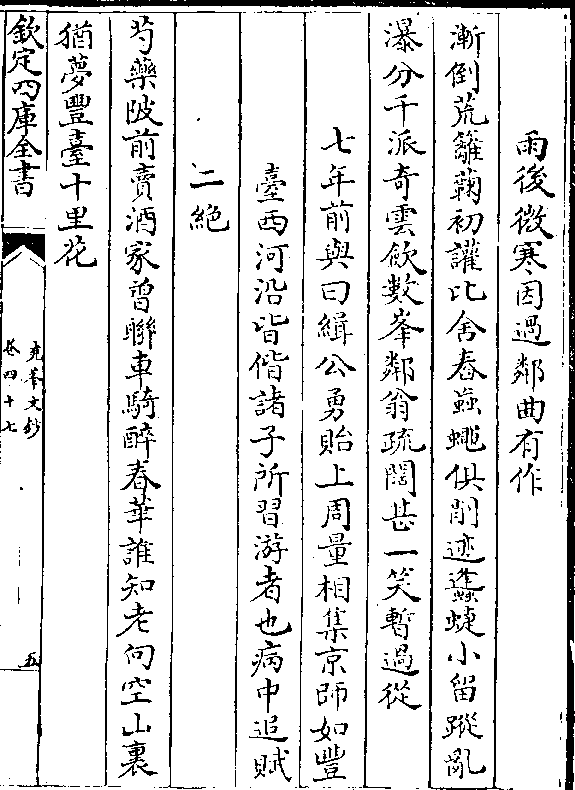 雨後微寒因過鄰曲有作
漸倒荒籬蘜初讙比舍舂蝱蠅俱削迹蠭蜨小留蹤亂
瀑分千派奇雲飲數峯鄰翁疏闊甚一笑暫過從
七年前與曰緝公勇貽上周量相集京師如豐
臺西河沿皆偕諸子所習游者也病中追賦
二絶
芍藥陂前賣酒家曾聯車騎醉春華誰知老向空山裏
猶夢豐臺十里花
欽定四庫全書
堯峯文鈔
卷四十七
五